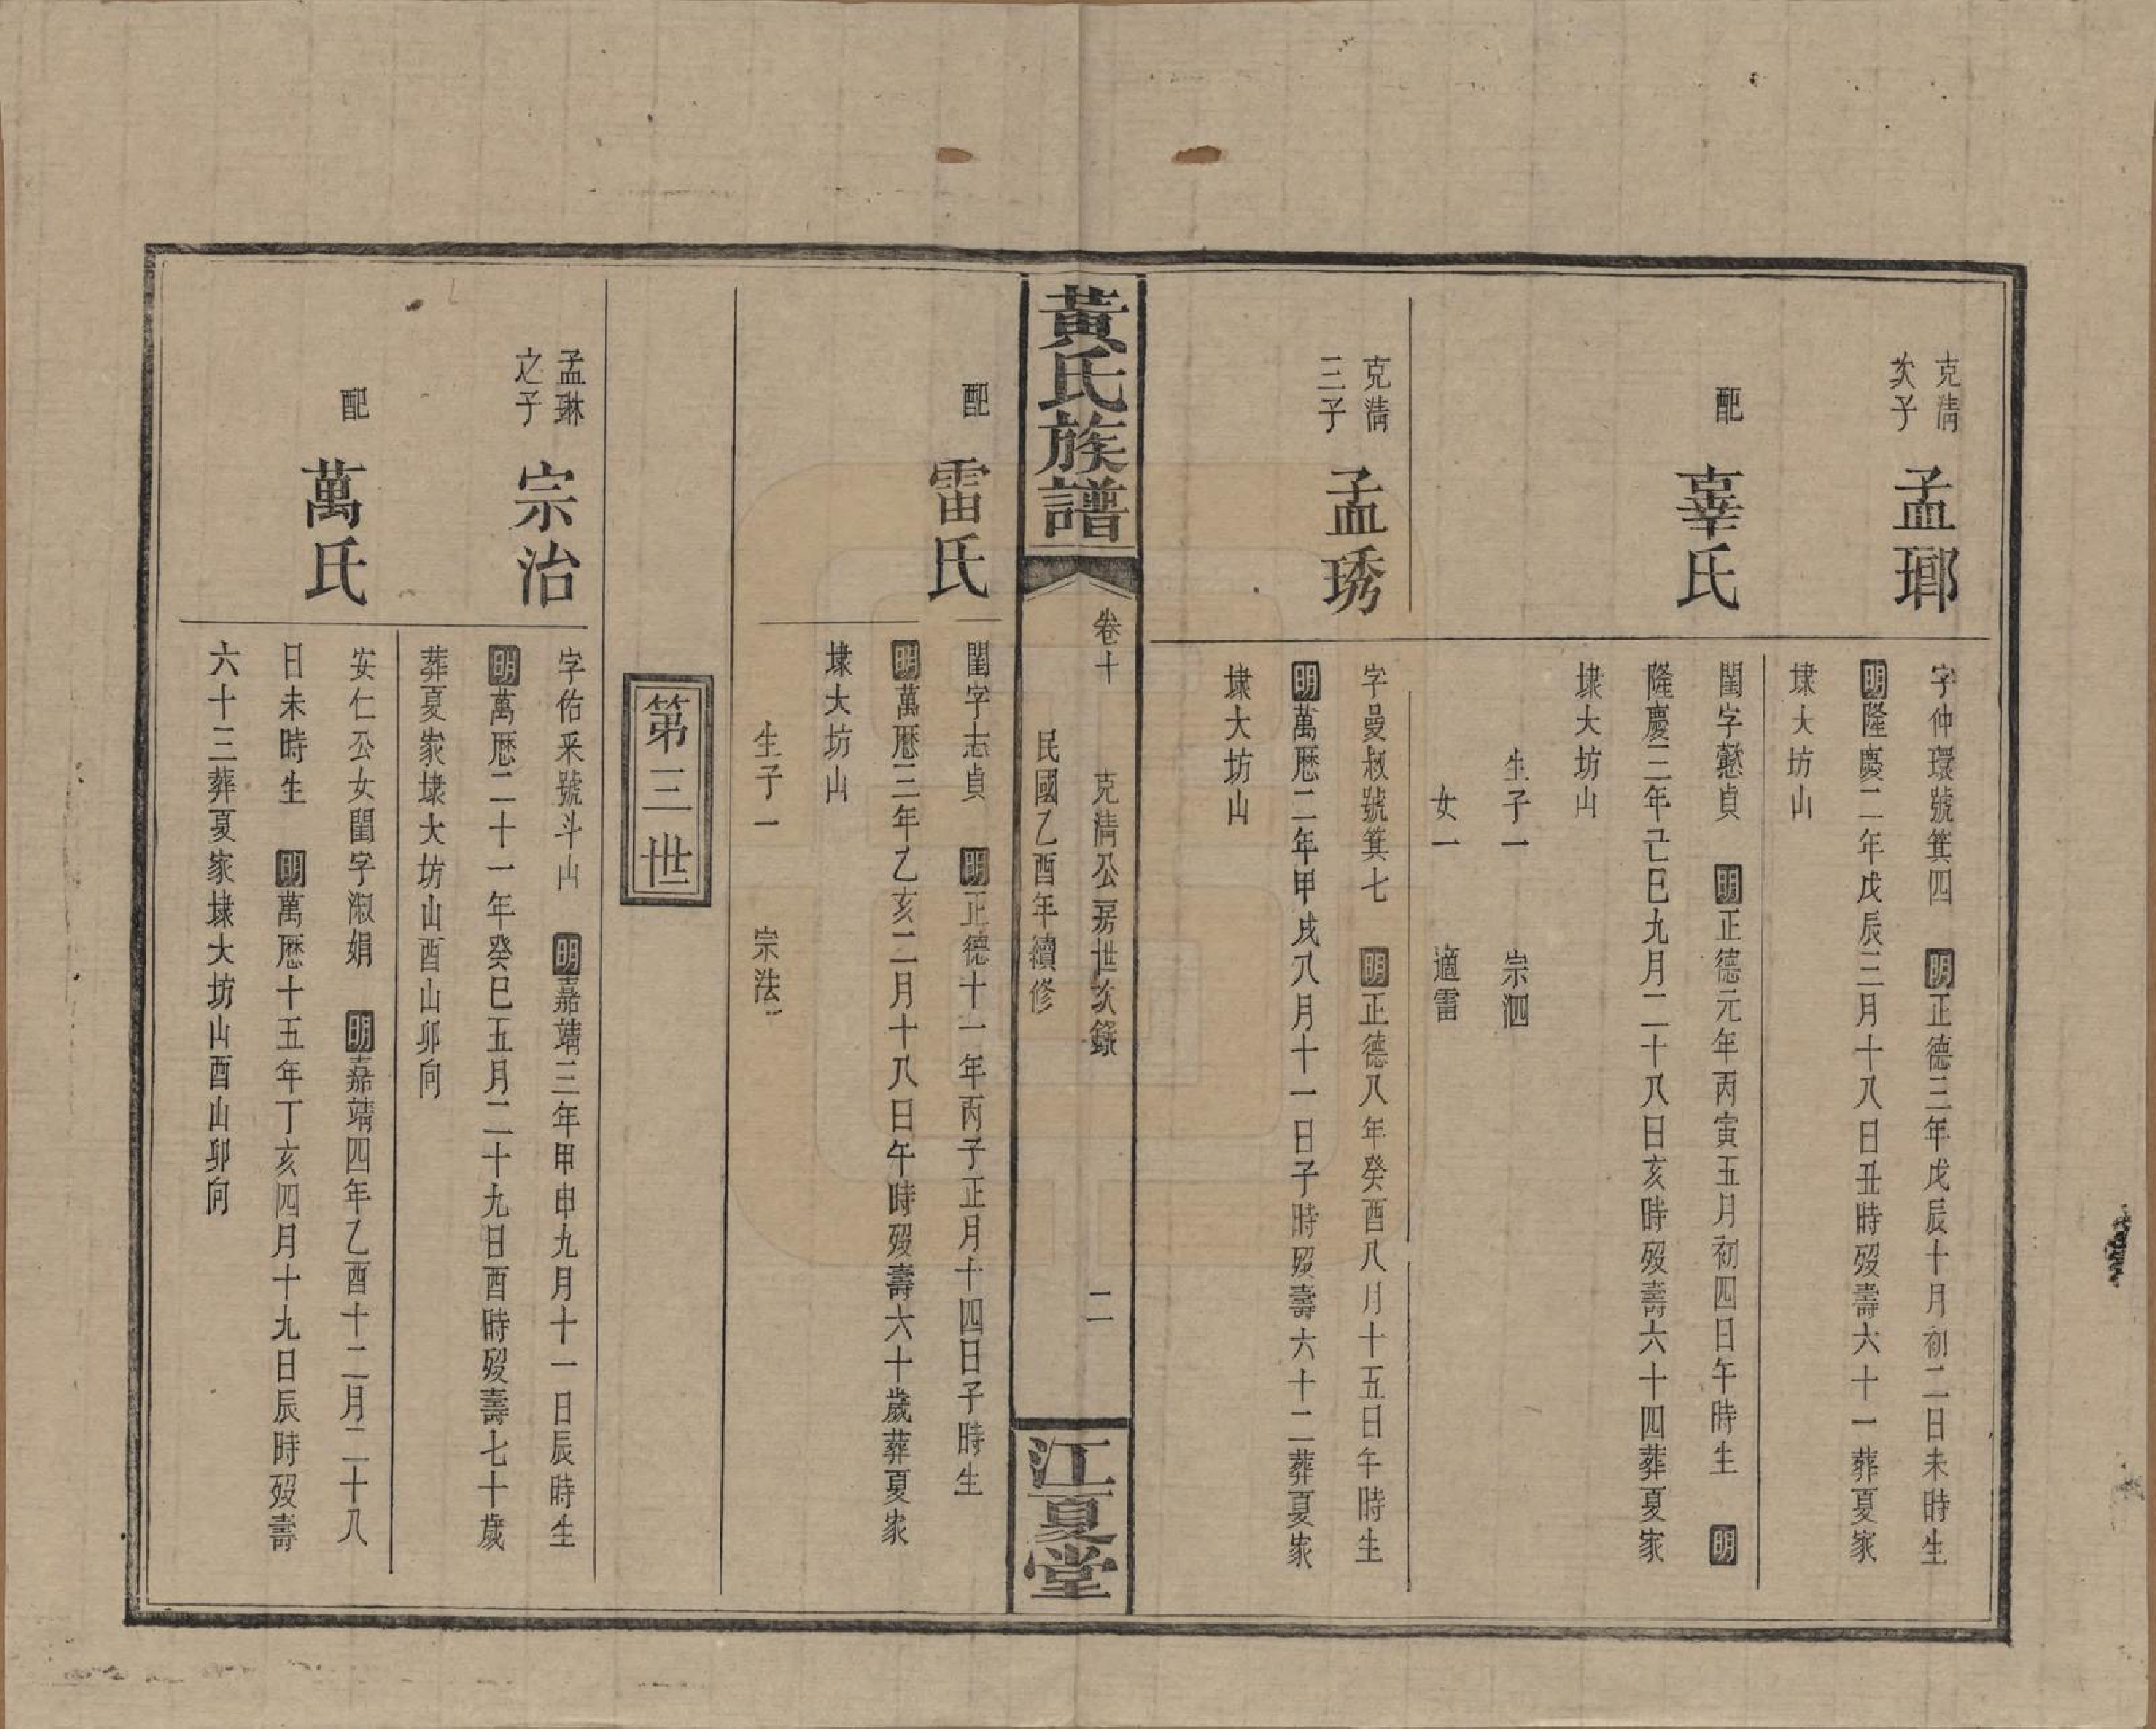 克淸
次子
孟瑯
字仲環號箕四 明正德三年戊辰十月初二日未時生
明隆慶二年戊辰三月十八日丑時歿壽六十一葬夏家
埭大坊山
配
辜氏
閨字懿貞 明正德元年丙寅五月初四日午時生 明
隆慶三年己巳九月二十八日亥時歿壽六十四葬夏家
埭大坊山
生子一 宗泗
女一 適雷
克淸
三子
孟琇
字曼叔號箕七 明正德八年癸酉八月十五日午時生
明萬厯二年甲戌八月十一日子時歿壽六十二葬夏家
埭大坊山
黃氏族譜
卷十 克淸公房世次錄 二
民國乙酉年續修
江夏堂
配
雷氏
閨字志貞 明正德十一年丙子正月十四日子時生
明萬厯三年乙亥二月十八日午時歿壽六十歲葬夏家
埭大坊山
生子一 宗法
第三世
孟琳
之子
宗治
字佑采號斗山 明嘉靖三年甲申九月十一日辰時生
明萬厯二十一年癸巳五月二十九日酉時歿壽七十歲
葬夏家埭大坊山酉山卯向
配
萬氏
安仁公女閨字淑娟 明嘉靖四年乙酉十二月二十八
日未時生 明萬厯十五年丁亥四月十九日辰時歿壽
六十三葬夏家埭大坊山酉山卯向